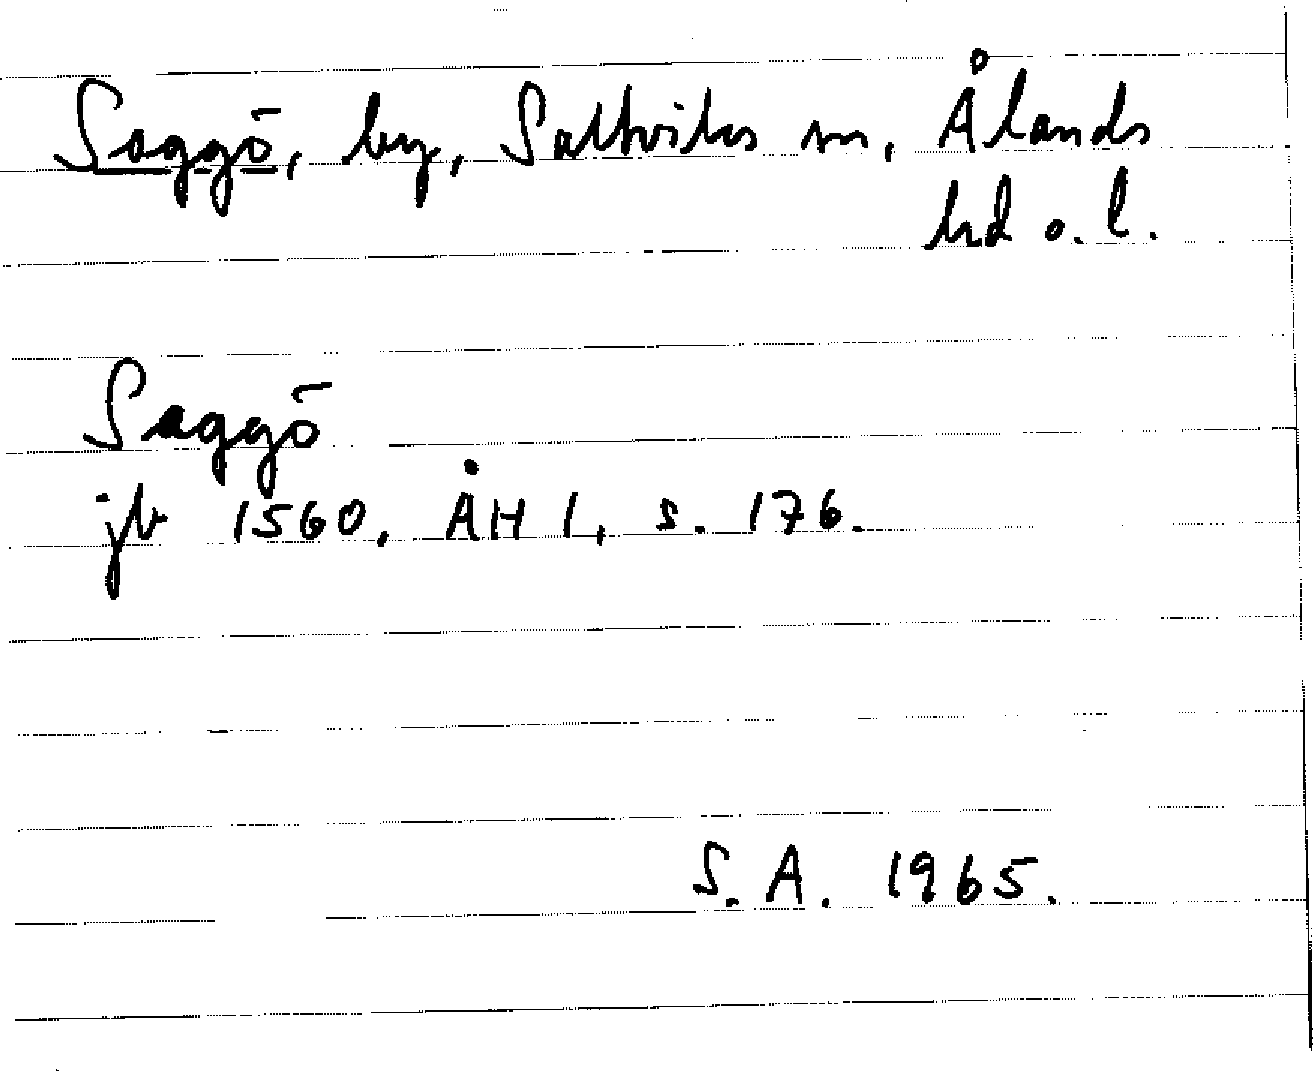 Saggö, by, Saltviks sn, Ålands
hd o. l.
Saggö
jb 1560. ÅH 1, s. 176.
S. A. 1965.